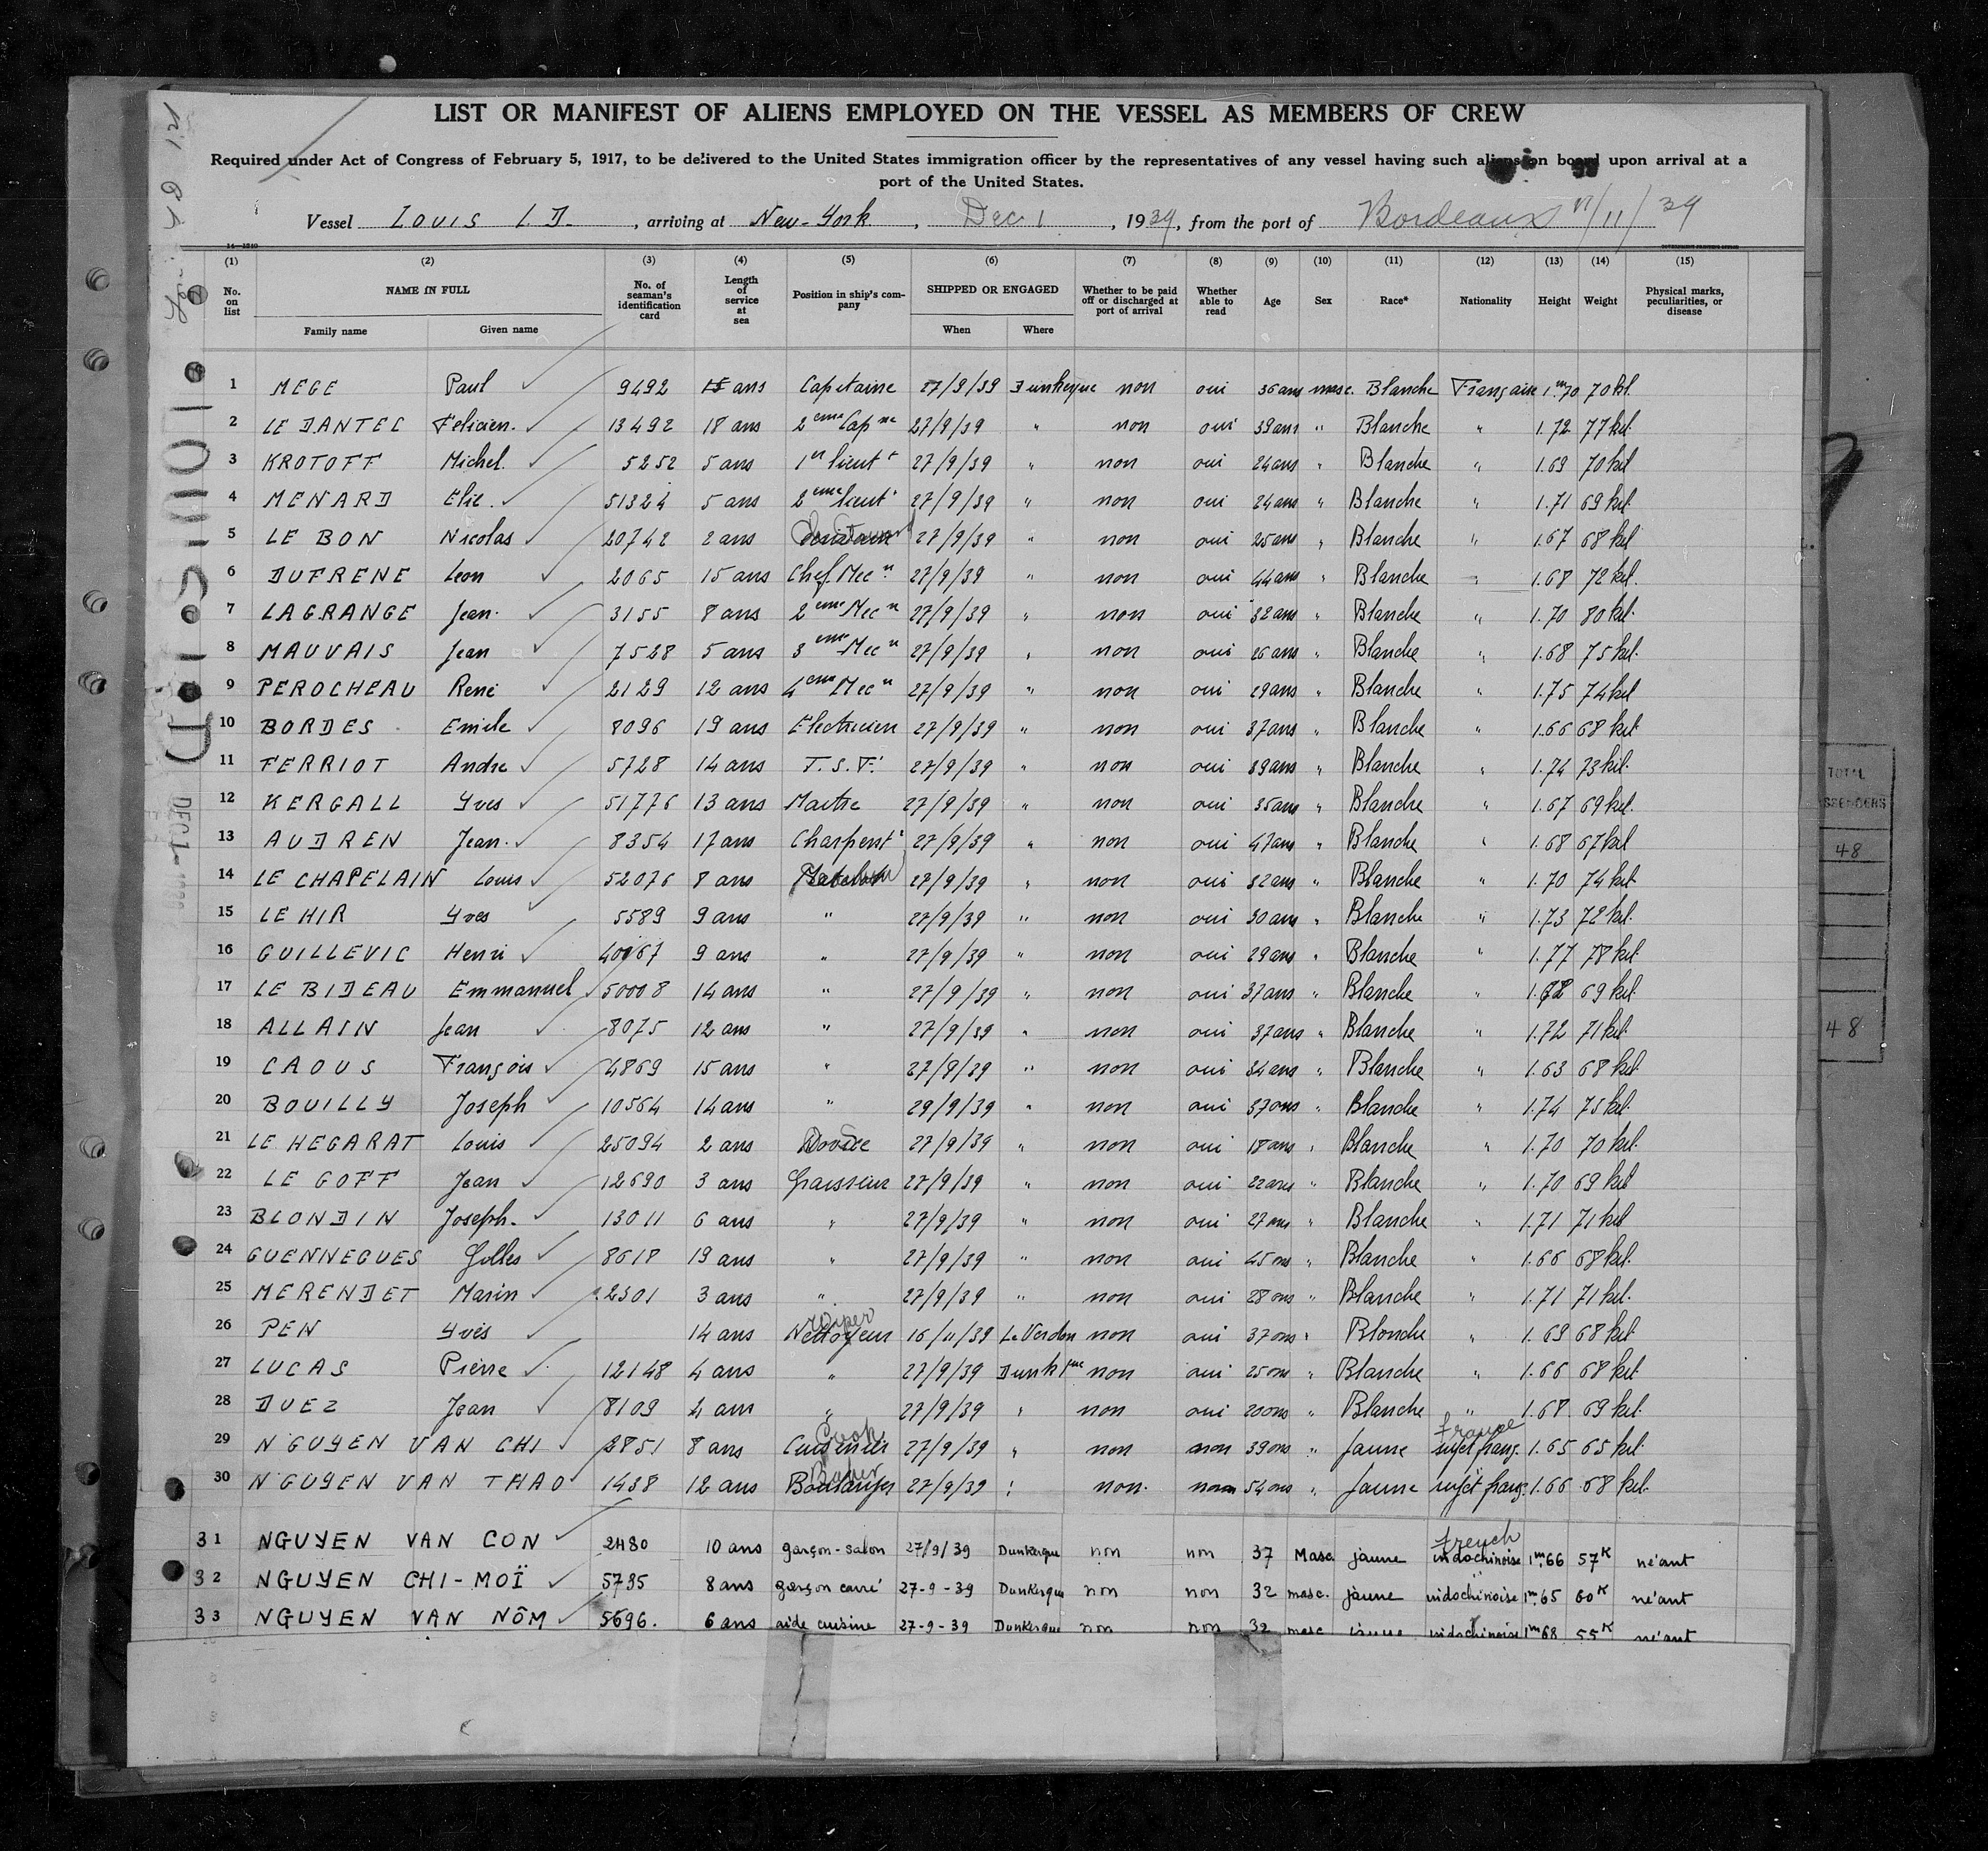 LIST OR MANIFEST OF ALIENS EMPLOYED ON THE VESSEL AS MEMBERS OF CREW
Required under Act of Congress of February 5, 1917, to be delivered to the United States immigration officer by the representatives of any vessel having such aliens on board upon arrival at a
port of the United States.
Vessel LOUIS L.D. , arriving at New-York , Dec 1 , 1939, from the port of Bordeaux 17/11/39
(1) (2) (3) (4) (5) (6) (7) (8) (9) (10) (11) (12) (13) (14) (15)
No. on list NAME IN FULL Family name Given name No. of seaman's identification card Length of service at sea Position in ship's company SHIPPED OR ENGAGED When Where Whether to be paid off or discharged at port of arrival Whether able to read Age Sex Race* Nationality Height Weight Physical marks, peculiarities, or disease
1 MEGE Paul 9492 ans Capitaine 27/9/39 Dunkerque non oui 36 ans masc. Blanche Française 1m70 70 kl
2 LE DANTEC Felicien. 13492 18 ans 2eme Capne 27/9/39 " non oui 39 ans " Blanche " 1.72 77 kil
3 KROTOFF Michel. 5252 5 ans 1er lieutt 27/9/39 " non oui 24 ans " Blanche " 1.69 70 kil
4 MENARD Elie. 51324 5 ans 2eme lieutt 27/9/39 " non oui 24 ans " Blanche " 1.71 69 kil
5 LE BON Nicolas 20742 2 ans 27/9/39 " non oui 25 ans " Blanche " 1.67 68 kil
6 DUFRENE Leon 2065 15 ans Chef Mecn 27/9/39 " non oui 44 ans " Blanche " 1.68 72 kil.
7 LAGRANGE Jean. 3155 8 ans 2eme Mecn 27/9/39 " non oui 32 ans " Blanche " 1.70 80 kil.
8 MAUVAIS Jean 7528 5 ans 3eme Mecn 27/9/39 " non oui 26 ans " Blanche " 1.68 75 kil.
9 PEROCHEAU René 2129 12 ans 4eme Mecn 27/9/39 " non oui 29 ans " Blanche " 1.75 74 kil
10 BORDES Emile 8096 19 ans Electricien 27/9/39 " non oui 37 ans " Blanche " 1.66 68 kil.
11 FERRIOT Andre 5728 14 ans T.S.F. 27/9/39 " non oui 39 ans " Blanche " 1.74 73 kil.
12 KERGALL Yves 51776 13 ans Maitre 27/9/39 " non oui 35 ans " Blanche " 1.67 69 kil.
13 AUDREN Jean. 8354 17 ans Charpentr 27/9/39 " non oui 47 ans " Blanche " 1.68 67 kil
14 LE CHAPELAIN Louis 52076 8 ans Matelot 27/9/39 " non oui 32 ans " Blanche " 1.70 74 kil.
15 LE HIR Yves 5589 9 ans " 27/9/39 " non oui 30 ans " Blanche " 1.73 72 kil.
16 GUILLEVIC Henri 9 ans " 27/9/39 " non oui 29 ans " Blanche " 1.77 78 kil.
17 LE BIDEAU Emmanuel 50008 14 ans " 27/9/39 " non oui 37 ans " Blanche " 69 kil.
18 ALLAIN Jean 8075 12 ans " 27/9/39 " non oui 37 ans " Blanche " 1.72 71 kil.
19 CAOUS François 4869 15 ans " 27/9/39 " non oui 34 ans " Blanche " 1.63 68 kil.
20 BOUILLY Joseph 10564 14 ans " 29/9/39 " non oui 37 ans " Blanche " 1.74 75 kil.
21 LE HEGARAT Louis 25094 2 ans Novice 27/9/39 " non oui 18 ans " Blanche " 1.70 70 kil.
22 LE GOFF Jean 12690 3 ans Graisseur 27/9/39 " non oui 22 ans " Blanche " 1.70 69 kil
23 BLONDIN Joseph. 13011 6 ans " 27/9/39 " non oui 27 ans " Blanche " 1.71 71 kil
24 GUENNEGUES Golles 8618 19 ans " 27/9/39 " non oui 45 ans " Blanche " 1.66 68 kil.
25 MERENDET Marin 2301 3 ans " 27/9/39 " non oui 28 ans " Blanche " 1.71 71 kil.
wiper
26 PEN Yves 14 ans Nettoyeur 16/11/39 Le Verdon non oui 37 ans " Blanche " 1.69 68 kil.
27 LUCAS Pierre 12148 4 ans " 27/9/39 Dunkque non oui 25 ans " Blanche " 1.66 68 kil.
28 DUEZ Jean 8109 4 ans " 27/9/39 " non oui 20 ans " Blanche " 1.68 69 kil.
Cook France
29 N'GUYEN VAN CHI 2851 8 ans Cuisinier 27/9/39 " non non 39 ans " Jaune sujet franç. 1.65 65 kil.
Baker
30 N'GUYEN VAN THAO 1438 12 ans Boulanger 27/9/39 " non. non 54 ans " Jaune sujet franç. 1.66 68 kil.
french
31 NGUYEN VAN CON 2480 10 ans garçon-salon 27/9/39 Dunkerque non non 37 Masc jaune indochinoise 1m.66 57K néant
32 NGUYEN CHI-MOÏ 5735 8 ans garçon carré 27-9-39 Dunkerque non non 32 masc. jaune indochinoise 1m.65 60K néant
33 NGUYEN VAN NÔM 5696. 6 ans aide cuisine 27-9-39 Dunkerque non non 32 masc jaune indochinoise 1m68 55K néant
Louis L.D.
DEC 1 - 1939
TOTAL
48
48